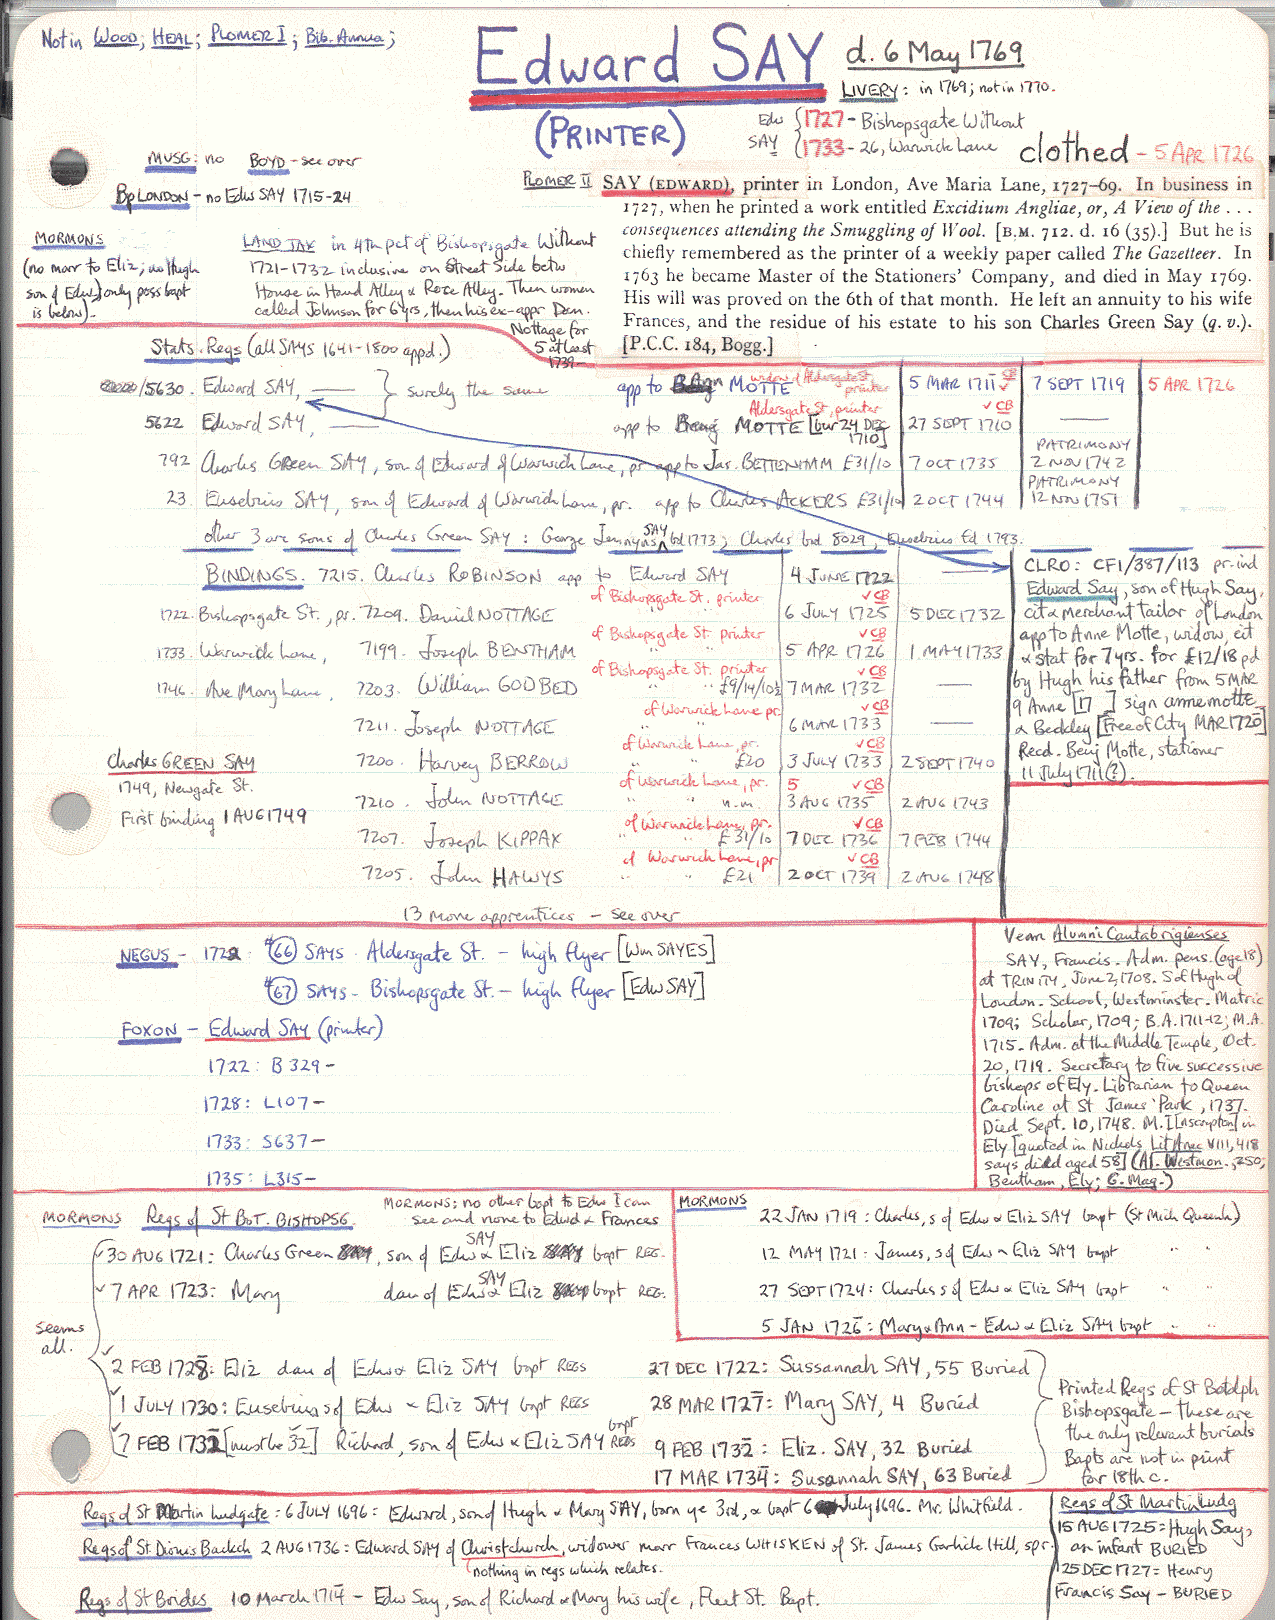 Not in WOOD; HEAL; PLOMER I; Bib. Annua;
Edward SAY d. 6 May 1769
LIVERY: in 1769; not in 1770.
(PRINTER)
Edw SAY { 1727 - Bishopsgate Without
1733 - 26, Warwick Lane
clothed - 5 APR 1726
MUSG: no BOYD - see over
Bp LONDON - no Edw SAY 1715-24
PLOMER II SAY (EDWARD), printer in London, Ave Maria Lane, 1727-69. In business in
1727, when he printed a work entitled Excidium Angliae, or, A View of the . . .
consequences attending the Smuggling of Wool. [B.M. 712. d. 16 (35).] But he is
chiefly remembered as the printer of a weekly paper called The Gazetteer. In
1763 he became Master of the Stationers' Company, and died in May 1769.
His will was proved on the 6th of that month. He left an annuity to his wife
Frances, and the residue of his estate to his son Charles Green Say (q. v.).
[P.C.C. 184, Bogg.]
MORMONS
(no marr to Eliz; no Hugh
son of Edw; only poss bapt
is below).
LAND TAX in 4th pct of Bishopsgate Without
1721-1732 inclusive on Street Side betw
House in Hand Alley & Rose Alley. Then women
called Johnson for 6 yrs, then his ex-appr Dan.
Nottage for
5 at least
1739-
Stats. Regs (all SAYS 1641-1800 appd.)
/5630. Edward SAY, —— } surely the same app to Ann MOTTE widow of Aldersgate St, printer 5 MAR 1711 CB 7 SEPT 1719 5 APR 1726
5622 Edward SAY, —— app to Benj MOTTE [bur 24 DEC 1710] Aldersgate St, printer 27 SEPT 1710 CB ——
792 Charles Green SAY, son of Edward of Warwick Lane, pr app to Jas. BETTENHAM £31/10 7 OCT 1735 PATRIMONY 2 NOV 1742
23. Eusebius SAY, son of Edward of Warwick Lane, pr. app to Charles ACKERS £31/10 2 OCT 1744 PATRIMONY 12 NOV 1751
other 3 are sons of Charles Green SAY: George Jennyns SAY bd 1773; Charles bd 8029, Eusebius Ed 1793.
BINDINGS. 7215. Charles ROBINSON app to Edward SAY 4 JUNE 1722 ——
1722. Bishopsgate St., pr. 7209. Daniel NOTTAGE of Bishopsgate St. printer CB 6 JULY 1725 5 DEC 1732
1733. Warwick Lane, 7199. Joseph BENTHAM of Bishopsgate St. printer CB 5 APR 1726 1 MAY 1733
1746. Ave Mary Lane, 7203. William GODBED of Bishopsgate St. printer £9/14/10½ CB 7 MAR 1732 ——
7211. Joseph NOTTAGE of Warwick Lane pr. CB 6 MAR 1733 ——
7200. Harvey BERROW of Warwick Lane, pr. £20 CB 3 JULY 1733 2 SEPT 1740
7210. John NOTTAGE of Warwick Lane, pr. n.m. 5 CB 3 AUG 1735 2 AUG 1743
7207. Joseph KIPPAX of Warwick Lane, pr. £31/10 CB 7 DEC 1736 7 FEB 1744
7205. John HAWYS of Warwick Lane, pr £21 CB 2 OCT 1739 2 AUG 1748
13 more apprentices - see over
Charles GREEN SAY
1749, Newgate St.
First binding 1 AUG 1749
CLRO: CF1/387/113 pr. ind
Edward Say, son of Hugh Say,
cit & merchant tailor of London
app to Anne Motte, widow, cit
& stat for 7 yrs. for £12/18 pd
by Hugh his father from 5 MAR
9 Anne [17 ] sign anne motte
& Beckley [Free of City MAR 1720]
Recd. Benj Motte, stationer
11 July 1711(?).
NEGUS - 1722 #66 SAYS Aldersgate St. - high flyer [Wm SAYES]
#67 SAYS - Bishopsgate St. - high flyer [Edw SAY]
FOXON - Edward SAY (printer)
1722: B 329-
1728: L107-
1733: S637-
1735: L315-
Venn Alumni Cantabrigienses
SAY, Francis. Adm. pens. (age 18)
at TRINITY, June 2, 1708. S of Hugh of
London. School, Westminster. Matric
1709; Scholar, 1709; B.A. 1711-12; M.A.
1715. Adm. at the Middle Temple, Oct.
20, 1719. Secretary to five successive
bishops of Ely. Librarian to Queen
Caroline at St James' Park, 1737.
Died Sept. 10, 1748. M.I [inscription] in
Ely [quoted in Nichols Lit Anec VIII, 418
says died aged 58] (Al. Westmon., 250;
Bentham, Ely; G. Mag.)
MORMONS Regs of St BOT. BISHOPSG. MORMONS; no other bapt to Edw I can
see and none to Edwd & Frances
30 AUG 1721: Charles Green, son of Edw & Eliz SAY bapt REG.
7 APR 1723: Mary dau of Edw & Eliz SAY bapt REG.
seems
all.
2 FEB 1728: Eliz dau of Edw & Eliz SAY bapt REGS
1 JULY 1730: Eusebius s of Edw & Eliz SAY bapt REGS
7 FEB 1732 [must be 32] Richard, son of Edw & Eliz SAY bapt REGS
MORMONS
22 JAN 1719: Charles, s of Edw & Eliz SAY bapt (St Mich Queenh)
12 MAY 1721: James, s of Edw & Eliz SAY bapt " "
27 SEPT 1724: Charles s of Edw & Eliz SAY bapt " "
5 JAN 1726: Mary & Ann - Edw & Eliz SAY bapt " "
27 DEC 1722: Sussannah SAY, 55 Buried
28 MAR 1727: Mary SAY, 4 Buried
9 FEB 1732: Eliz. SAY, 32 Buried
17 MAR 1734: Susannah SAY, 63 Buried
Printed Regs of St Botolph
Bishopsgate - these are
the only relevant burials
Bapts are not in print
for 18th c.
Regs of St Martin Ludgate: 6 JULY 1696: Edward, son of Hugh & Mary SAY, born ye 3rd, & bapt 6 July 1696. Mr. Whitfield.
Regs of St. Dionis Backch 2 AUG 1736: Edward SAY of Christchurch, widower marr Frances WHISKEN of St. James Garlick Hill, spr.
(nothing in regs which relates.
Regs of St Brides 10 March 1714 - Edw Say, son of Richard & Mary his wife, Fleet St. Bapt.
Regs of St Martin Ludg
15 AUG 1725: Hugh Say,
an infant BURIED
25 DEC 1727: Henry
Francis Say - BURIED